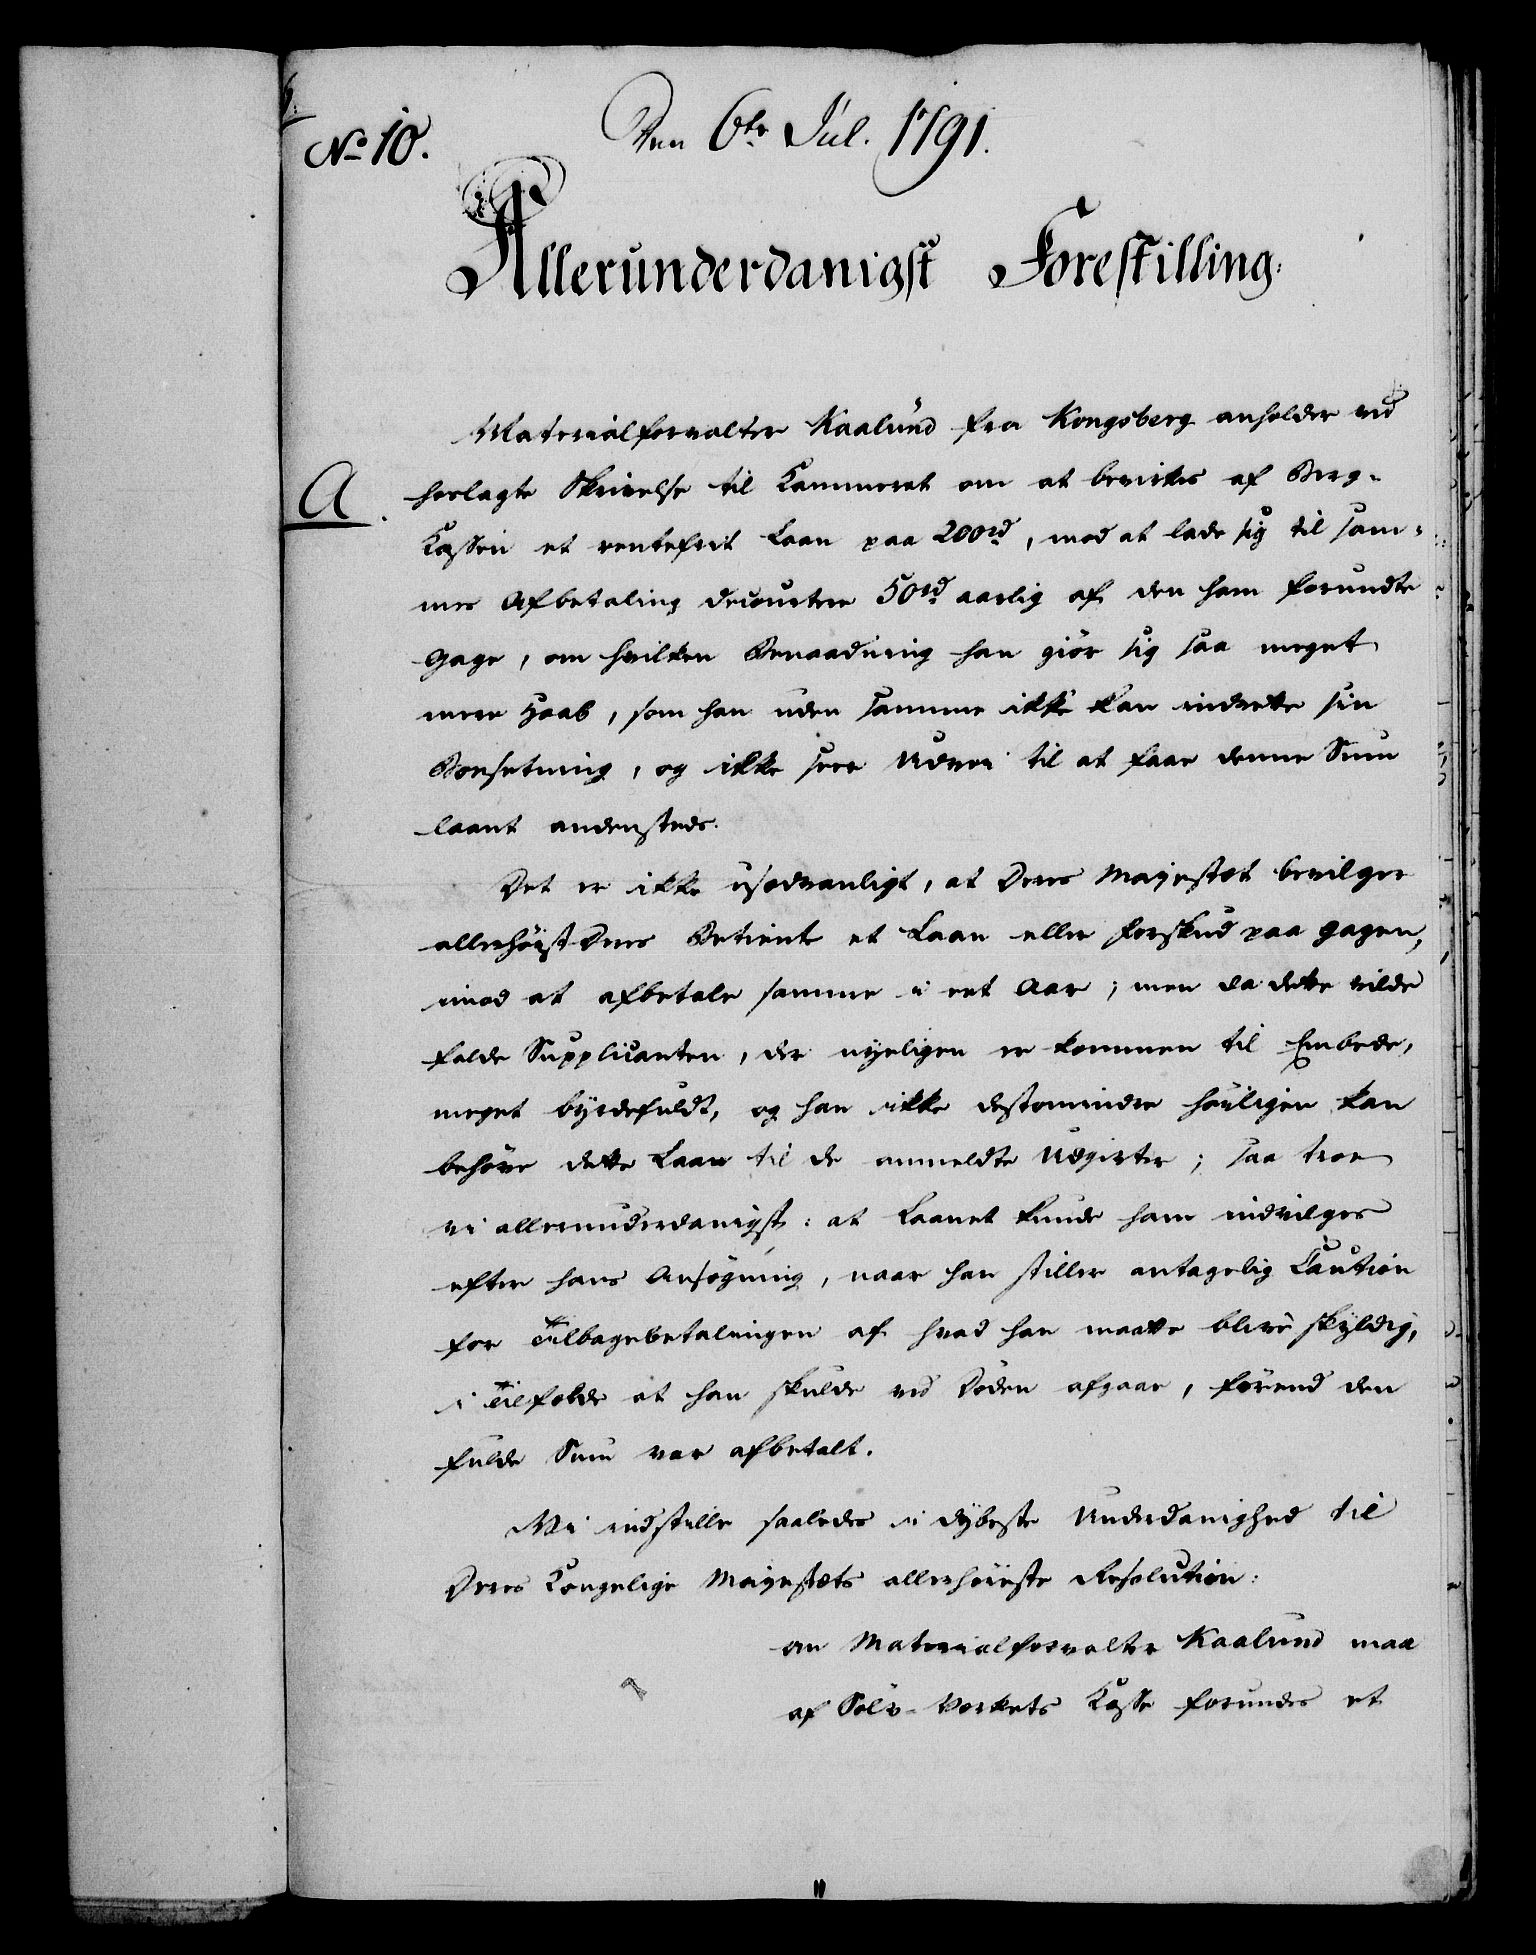 No 10.
Den 6te Jul. 1791.
Allerunderdanigst Forestilling.
Materialforvalter Kaalund fra Kongsberg anholder ved
A. hoslagte Skrivelse til Kammeret om at bevirkes af Berg-
Cassen et rentefrit Laan paa 200rd, mod at lade sig til sam-
mes Afbetaling decourtere 50rd aarlig af den ham forundte
Gage, om hvilken Benaadning han giør sig saa meget
meere Haab, som han uden samme ikke kan indrette sin
Boesetning, og ikke seer Udvei til at faae denne Sum
laant andensteds.
Det er ikke usædvanligt, at Deres Majestæt bevilger
allerhøist Deres Betiente et Laan eller Forskud paa Gagen,
imod at afbetale samme i eet Aar; men da dette vilde
falde Supplicanten, der nyeligen er kommen til Embede,
meget byrdefuldt, og han ikke destomindre høiligen kan
behøve dette Laan til de anmeldte Udgivter; saa troe
vi allerunderdanigst: at Laanet kunde ham indvilges
efter hans Ansøgning, naar han stiller antagelig Caution
for Tilbagebetalingen af hvad han maatte blive skyldig,
i Tilfælde at han skulde ved Døden afgaae, førend den
fulde Sum var afbetalt.
Vi indstille saaledes i dybeste Underdanighed til
Deres Kongelige Majestæts allerhøieste Resolution:
om Materialforvalter Kaalund maa
af Sølv-Verkets Casse forundes et